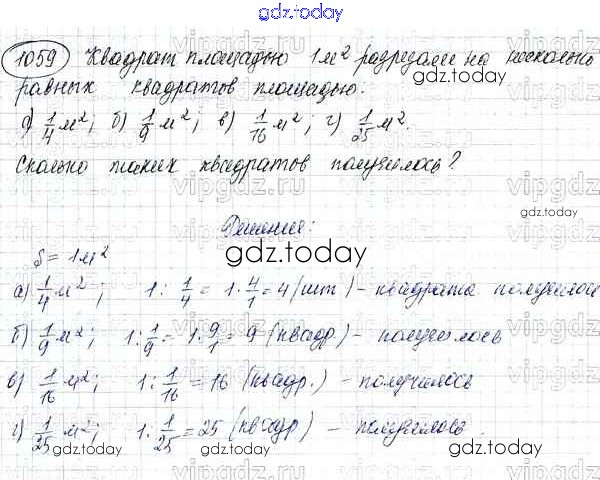 gdz.today
1059 Квадрат площадью 1 м² разрезали на несколько
gdz.today
равных квадратов площадью:
а) 1/4 м²; б) 1/9 м²; в) 1/16 м²; г) 1/25 м².
gdz.today
Сколько таких квадратов получилось?
vipgdz.ru
gdz.today
Решение:
gdz.today
S = 1 м²
а) 1/4 м²; 1 : 1/4 = 1 · 4/1 = 4 (шт) – квадрата получилось
б) 1/9 м²; 1 : 1/9 = 1 · 9/1 = 9 (квадр) – получилось
gdz.today
в) 1/16 м²; 1 : 1/16 = 16 (квадр.) – получилось
г) 1/25 м²; 1 : 1/25 = 25 (квадр) – получилось.
gdz.today
gdz.today